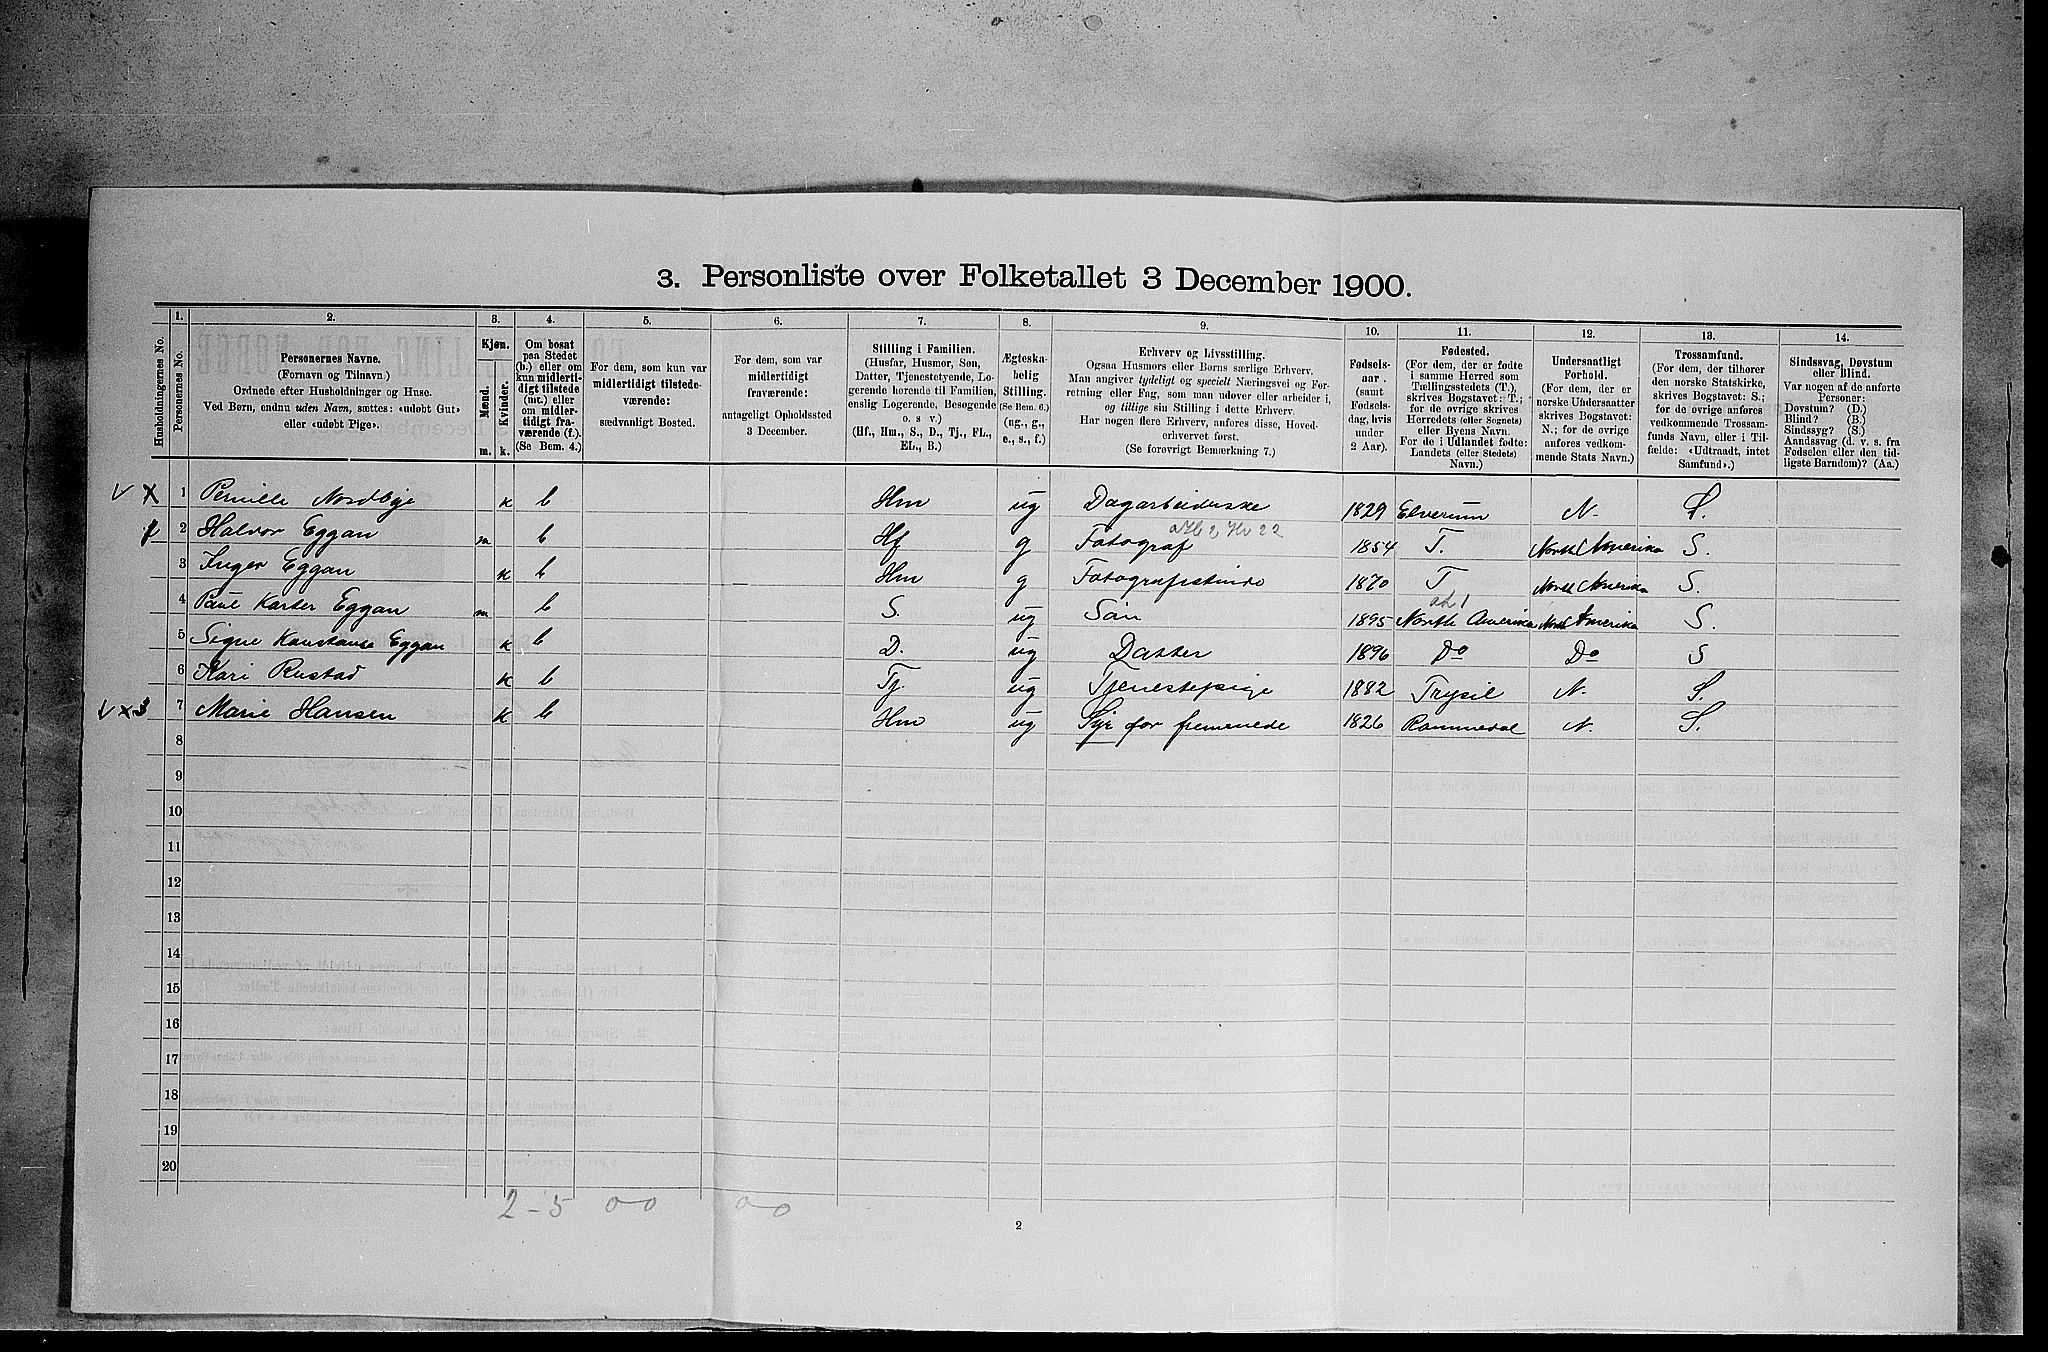 3. Personliste over Folketallet 3 December 1900.
Husholdningernes No.
1. Personernes No.
2. Personernes Navne.
(Fornavn og Tilnavn.)
Ordnede efter Husholdninger og Huse.
Ved Børn, endnu uden Navn, sættes: «udøbt Gut»
eller «udøbt Pige».
3. Kjøn.
Mænd. Kvinder.
m. k.
4. Om bosat
paa Stedet
(b.) eller om
kun midlerti-
digt tilstede
(mt.) eller
om midler-
tidigt fra-
værende (f.).
(Se Bem. 4.)
5. For dem, som kun var
midlertidigt tilstede-
værende:
sædvanligt Bosted.
6. For dem, som var
midlertidigt
fraværende:
antageligt Opholdssted
3 December.
7. Stilling i Familien.
(Husfar, Husmor, Søn,
Datter, Tjenestetyende, Lo-
gerende hørende til Familien,
enslig Logerende, Besøgende
o. s v.)
(Hf., Hm., S., D., Tj., FL.,
EL., B.)
8. Ægteska-
belig
Stilling.
(Se Bem. 6.)
(ug., g.,
e., s., f.)
9. Erhverv og Livsstilling.
Ogsaa Husmors eller Børns særlige Erhverv.
Man angiver tydeligt og specielt Næringsvei og For-
retning eller Fag, som man udover eller arbeider i,
og tillige sin Stilling i dette Erhverv.
Har nogen flere Erhverv, anføres disse, Hoved-
erhvervet først.
(Se forøvrigt Bemærkning 7.)
10. Fødsels-
aar.
(samt
Fødsels-
dag, hvis
under
2 Aar).
11. Fødested.
(For dem, der er fødte
i samme Herred som
Tællingsstedets (T.),
skrives Bogstavet: T.;
for de øvrige skrives
Herredets (eller Sognets)
eller Byens Navn.
For de i Udlandet fødte:
Landets (eller Stedets)
Navn.)
12. Undersaatligt
Forhold.
(For dem, der er
norske Undersaatter
skrives Bogstavet:
N.; for de øvrige
anføres vedkom-
mende Stats Navn.)
13. Trossamfund.
(For dem, der tilhører
den norske Statskirke,
skrives Bogstavet: S.;
for de øvrige anføres
vedkommende Trossam-
funds Navn, eller i Til-
fælde: «Udtraadt, intet
Samfund».)
14. Sindssvag, Døvstum
eller Blind.
Var nogen af de anførte
Personer:
Døvstum? (D.)
Blind? (B.)
Sindssyg? (S.)
Aandssvag (d. v. s. fra
Fødselen eller den tid-
ligste Barndom)? (Aa.)
1 Pernille Nordbye k b Hm ug Dagarbeiderske 1829 Elverum N. S.
2 Halvor Eggan m b Hf g Fotograf 1854 T. North Amerika S.
3 Inger Eggan k b Hm g Fotografistinde 1870 T North Amerika S.
4 Paul Karter Eggan m b S. ug Søn 1895 North Amerika North Amerika S.
5 Signe Konstanse Eggan k b D. ug Datter 1896 Do Do S
6 Kari Rustad k b Tj. ug Tjenestepige 1882 Trysil N. S.
7 Marie Hansen k b Hm ug Syr for fremmede 1826 Rommedal N. S.
8
9
10
11
12
13
14
15
16
17
18
19
20
2 - 5 0 0 0 0
2